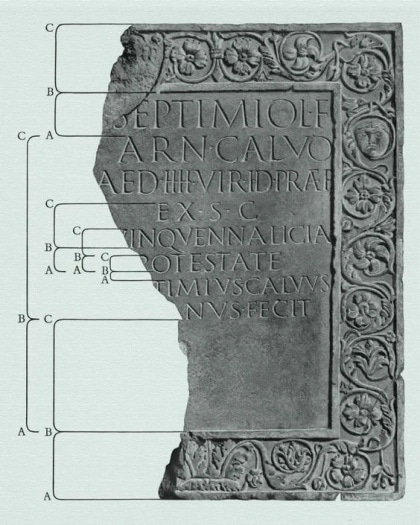 C
B
C A
C
C
B
B C
A A B
A
B C
A B
A
SEPTIMIO L F
ARN·CALVO
AED·IIII·VIR·I·D·PRÆF
EX·S·C
INQVENNALICIA
OTESTATE
TIMIVS CALVVS
NVS FECIT